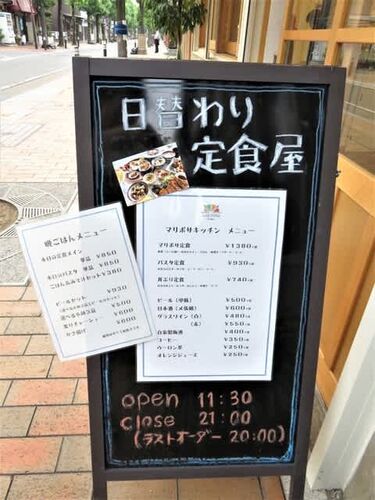 日替わり
定食屋
晩ごはんメニュー
本日の定食メイン
単品 ¥850
本日のパスタ 単品 ¥850
ごはんおみそ汁セット¥380
ビールセット ¥930
¥500
¥600
¥600
マリポサキッチン メニュー
マリポサ定食 ¥1380
パスタ定食 ¥930
丼ぶり定食 ¥740
ビール（中瓶） ¥500
日本酒（〆張鶴） ¥600
グラスワイン（白） ¥480
（赤） ¥550
自家製梅酒 ¥400
コーヒー ¥350
ウーロン茶 ¥250
オレンジジュース ¥250
open 11:30
close 21:00
(ラストオーダー 20:00)